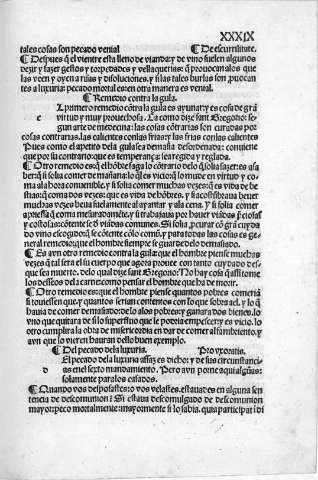 XXXIX
tales cosas son pecado venial ¶ De escurrilitate.
¶ Despues q̃ el vientre esta lleno de viandas y de vino suelen algunos
dezir y fazer gestos y torpedades y vellaquerias: q̃ prouocan alos que
las veen y oyen a risas y disoluciones. y si las tales burlas son, puocan
tes a luxuria: pecado mortal es: en otra manera es venial.
¶ Remedio cõtra la gula.
L primero remedio cõtra la gula es ayunar: y es cosa de grã
e virtud y muy prouechosa. Ca como dize sant Gregorio: se-
gun arte de medecina: las cosas cõtrarias son curadas por
cosas contrarias. las calientes con las frias: y las frias con las calientes
Pues como el apetito dela gula sea demasia desordenada: conuiene
que por su contrario: que es temperança: sea regida y reglada.
¶ Otro remedio es: q̃ el hõbre faga lo cõtrario delo q̃ solia fazer: es asa
ber: q̃ si solia comer de mañana: lo q̃ es vicio: q̃ lo mude en virtud y co-
ma ala hora conuenible. y si solia comer muchas vezes: q̃ es vida de be
stias: q̃ coma dos vezes: que es vida de hõbres. y si acostũbraua beuer
muchas vezes beua solamente al ayantar y ala cena. y si solia comer
apriessa: q̃ coma mesuradamẽte. y si trabajaua por hauer viãdas p̃ciosas
y costosas: cõtente se cõ viãdas comunes. Si solia, pcurar cõ grã cuyda
do vino escogido: q̃ se cõtente cõlo comũ. y para todas las cosas es ge-
neral remedio: que el hombre siempre se guarde delo demasiado.
¶ Es avn otro remedio contra la gula: que el hombre piense muchas
vezes q̃ tal sera el su cuerpo que agora pone con tanto cuydado del-
que sea muerto. delo qual dize sant Gregorio: No hay cosa q̃ assi tome
los desseos dela carne como pensar el hombre que ha de morir.
¶ Otro remedio es: que el hombre piense quantos pobres comeriã
si touiessen que. y quantos serian contentos con lo que sobra ael. y lo q̃
hauia de comer demasiado: delo alos pobres: y ganara dos bienes. lo
vno que quitara de si lo superfluo que le podria empescer: y es vicio. lo
otro cumplira la obra de misericordia en dar de comer al fambriento. y
avn que lo vieren hauran dello buen exemplo.
¶ Del pecado dela luxuria.
El pecado dela luxuria assaz es dicho: y de sus circunstanci-
as enel sexto mandamiento. Pero avn pone aqui algũas:
solamente para los casados.
¶ Quando vos desposastes: o vos velastes. estauades en alguna sen
tencia de descomunion: Si estaua descomulgado de descomunion
mayor: peco mortalmente: mayormente si lo sabia. quia participat ĩ di